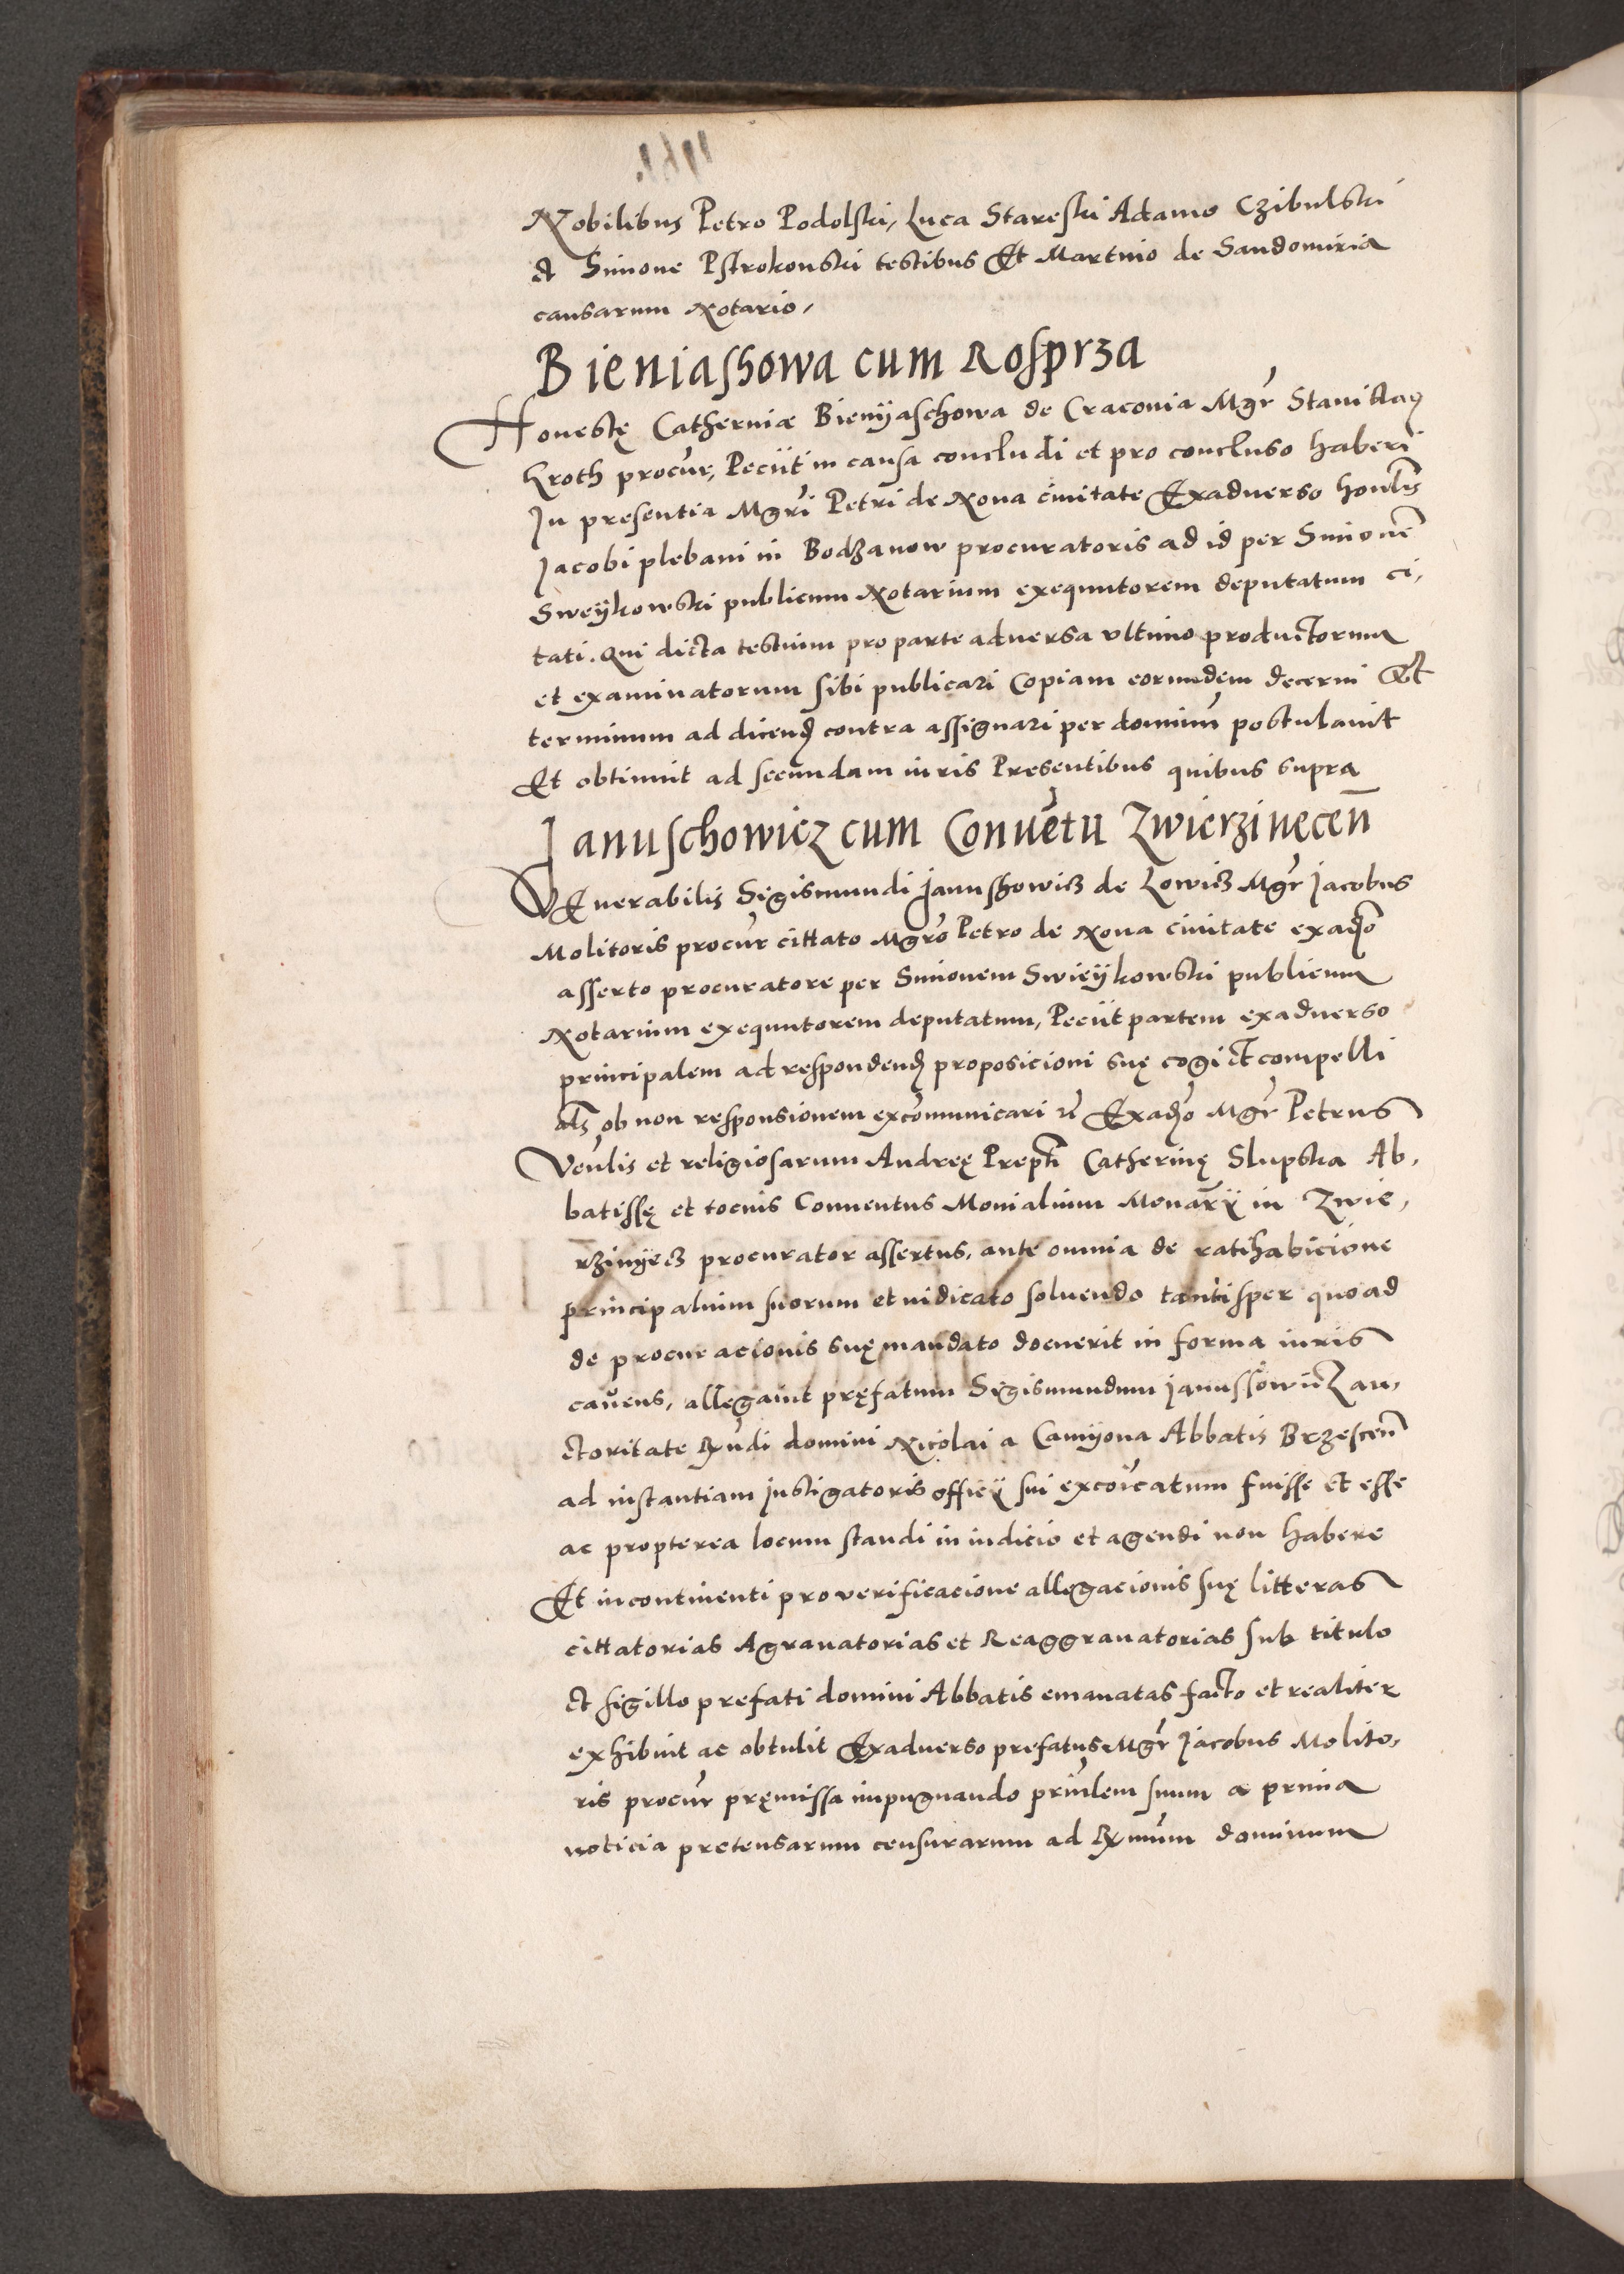 Nobilibus Petro Podolski, Luca Stareski Adamo Czibulski
et Simone Pstrokonski testibus Et Martino de Sandomiria
causarum Notario,
Bieniashowa cum Rosprza
Honestę Catherinæ Bienÿaschowa de Craconia Mgr̃
Kroth procur̃, Peciit in causa concludi et pro concluso haberi
In presentia Mgr̃i Petri de Noua ciuitate Exaduerso honl̃is
Jacobi plebani in Bodzanow procuratoris ad id per Simonẽ
Sweÿkowski publicum Notarium exequutorem deputatum ci,
tati. Qui dicta testium pro parte aduersa vltimo productorum
et examinatorum sibi publicari Copiam eorundem decerni Et
terminum ad dicend̃ contra assignari per dominũ postulauit
Et obtinuit ad secundam iuris Presentibus quibus supra
Januschowicz cum Conuẽtu Zwierzinęceñ
VEnerabilis Sigismundi Janushowicz de Lowicz Mgr̃ Jacobus
Molitoris procur̃ cittato Mgr̃o Petro de Noua ciuitate exad̃o
asserto procuratore per Simonem Swieÿkowski publicum
Notarium exequutorem deputatum, Peciit partem exaduerso
principalem ad respondend̃ proposicioni suę cogi et compelli
al̃s ob non responsionem excõmunicari Exad̃o Mgr̃ Petrus
Veñlis et religiosarum Andreę Prepti Catherinę Slupska Ab,
batissę et tocius Conuentus Monialium Monar̃ÿ in Zwie,
rzinÿecz procurator assertus, ante omnia de ratihabicione
principalium suorum et iudicato soluendo tantisper quoad
de procuracionis suę mandato docuerit in forma iuris
cauens, allegauit pręfatum Sigismundum Janussowicz au,
ctoritate Rṽndi domini Nicolai a Camÿona Abbatis Brzesceñ
ad instantiam Justigatoris officÿ sui excoĩcatum fuisse et esse
ac propterea locum standi in iudicio et agendi non habere
Et incontinenti pro verificacione allegacionis suę litteras
cittatorias Agrauatorias et Reaggrauatorias sub titulo
et sigillo prefati domini Abbatis emanatas facto et realiter
exhibuit ac obtulit Exaduerso prefatus Mgr̃ Jacobus Molito,
ris procur̃ pręmissa impugnando prin̄lem suum a prima
noticia pretensarum censurarum ad Rṽmum dominum